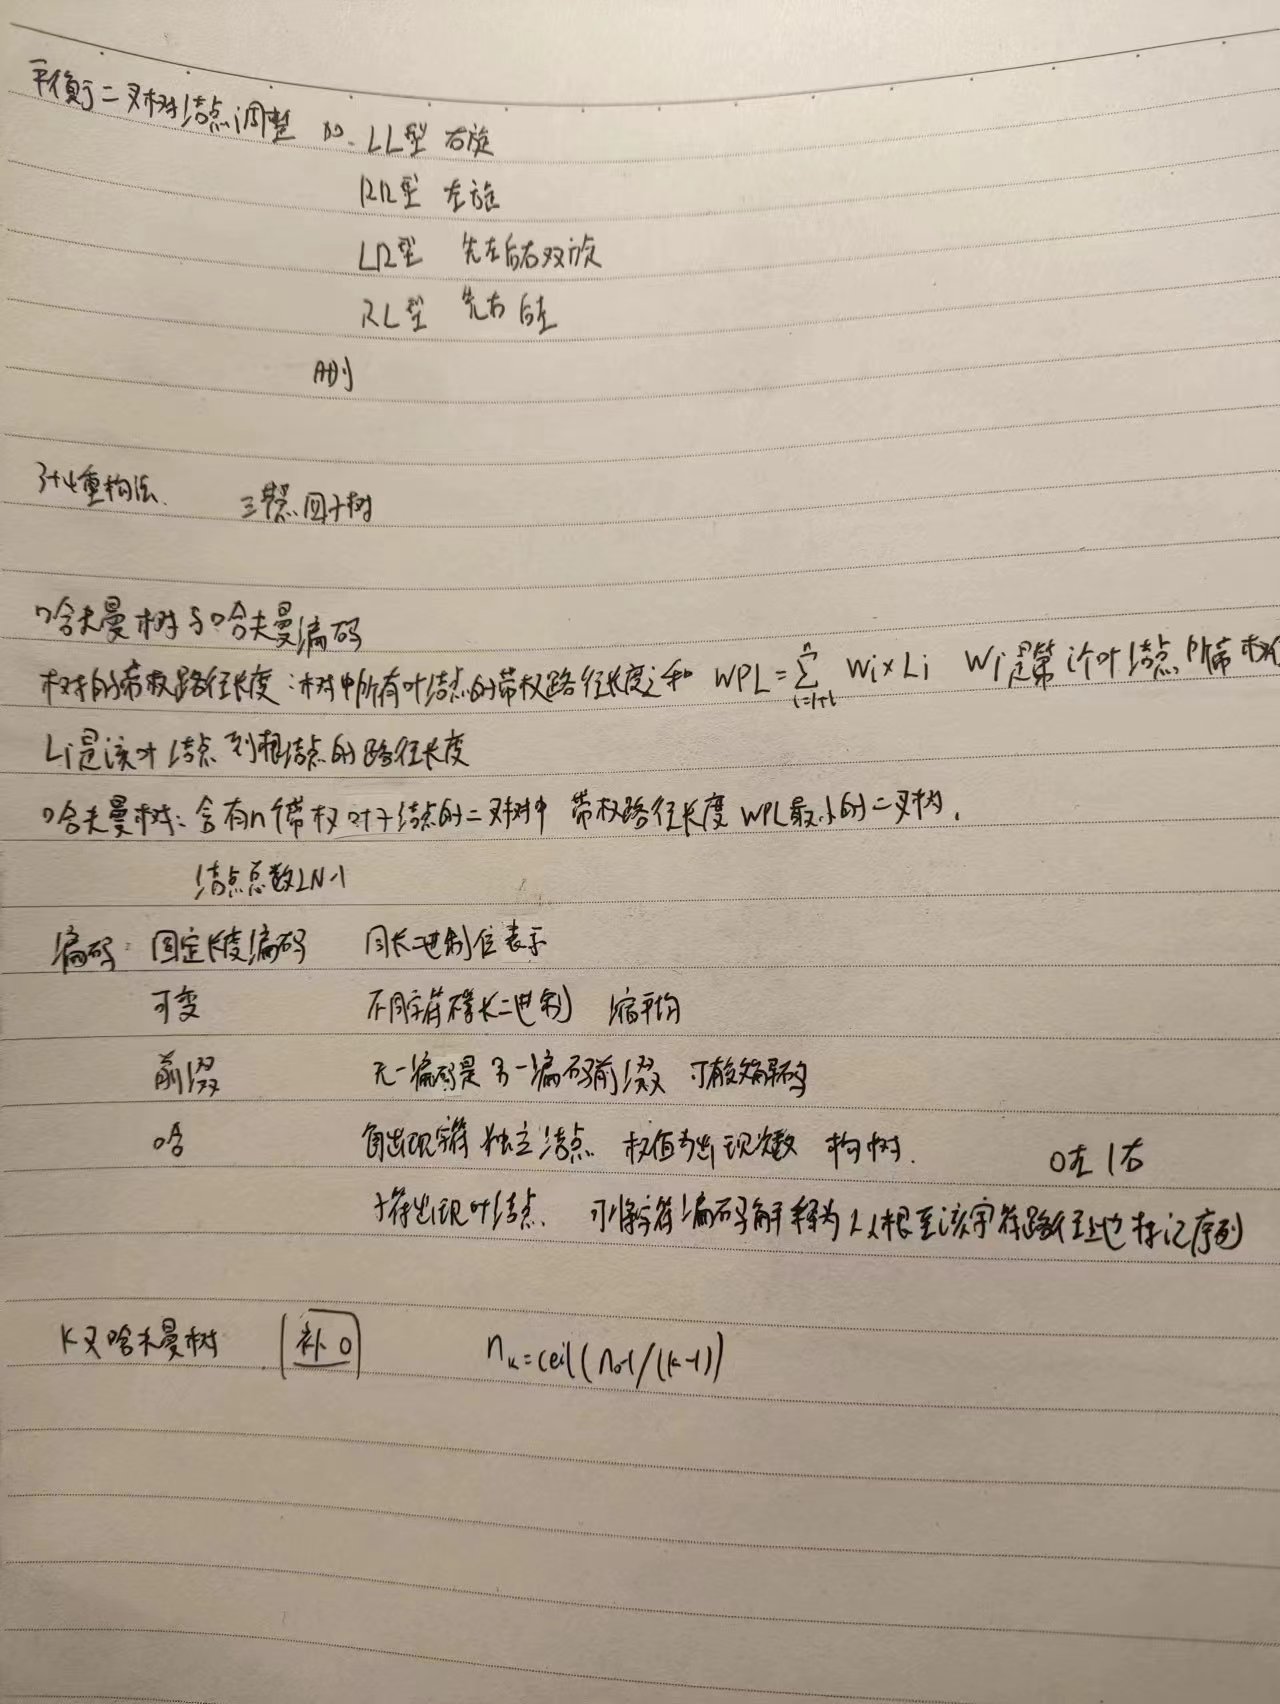 平衡二叉树结点调整 LL型 右旋
RR型 左旋
LR型 先左后右双旋
RL型 先右后左
删
3+4重构法 三节点 四子树
哈夫曼树与哈夫曼编码
树的带权路径长度：树中所有叶结点的带权路径长度之和 WPL=∑ Wi×Li Wi是第i个叶结点所带权值
n
i=1
Li是该叶结点到根结点的路径长度
哈夫曼树：含有n个带权叶子结点的二叉树中 带权路径长度WPL最小的二叉树.
结点总数2N-1
编码：固定长度编码 同长二进制位表示
可变 不同字符不等长二进制 缩平均
前缀 无一编码是另一编码前缀 可有效解码
哈 每出现字符 独立结点 权值为出现次数 构树. 0左 1右
字符出现叶结点. 可将字符编码解释为 从根至该字符路径上 标记序列
K叉哈夫曼树 补0 nk=ceil(n0-1/(k-1))